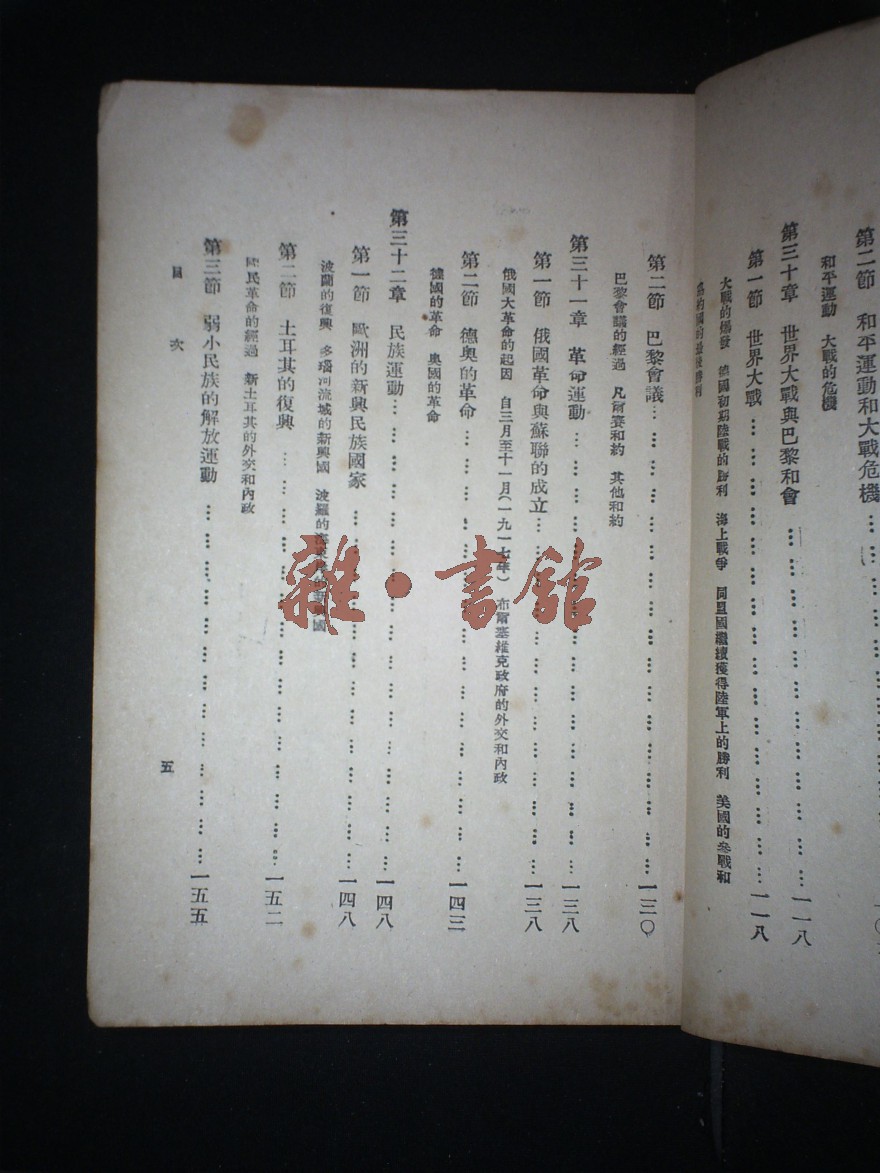 第二節 和平運動和大戰危機
和平運動 大戰的危機
第三十章 世界大戰與巴黎和會 一一八
第一節 世界大戰 一一八
大戰的爆發 德國初期陸戰的勝利 海上戰爭 同盟國繼續獲得陸軍上的勝利 美國的參戰和
協約國的最後勝利
第二節 巴黎會議 一三〇
巴黎會議的經過 凡爾賽和約 其他和約
第三十一章 革命運動 一三八
第一節 俄國革命與蘇聯的成立 一三八
俄國大革命的起因 自三月至十一月(一九一七年) 布爾塞維克政府的外交和內政
第二節 德奧的革命 一四三
德國的革命 奧國的革命
第三十二章 民族運動 一四八
第一節 歐洲的新興民族國家 一四八
波蘭的復興 多瑙河流域的新興國 波羅的海
第二節 土耳其的復興 一五二
國民革命的經過 新土耳其的外交和內政
第三節 弱小民族的解放運動 一五五
目次
五
雜·書館